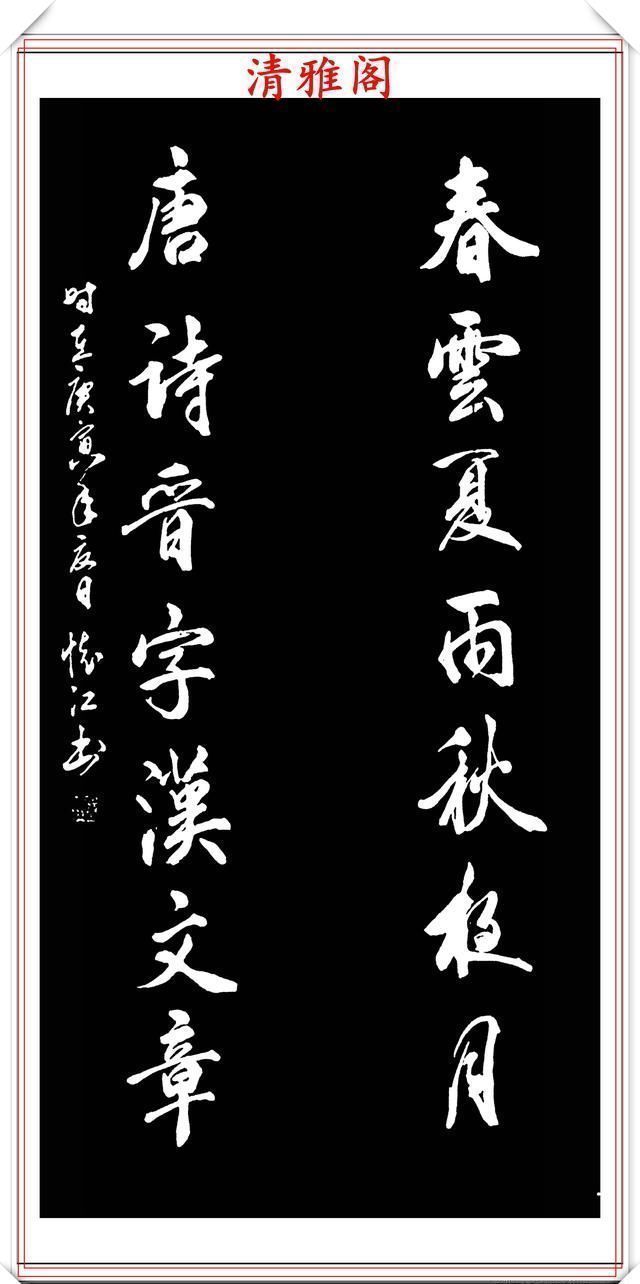 清雅阁
春雲夏雨秋夜月
唐詩晋字漢文章
时在庚寅年夏日 懷江书